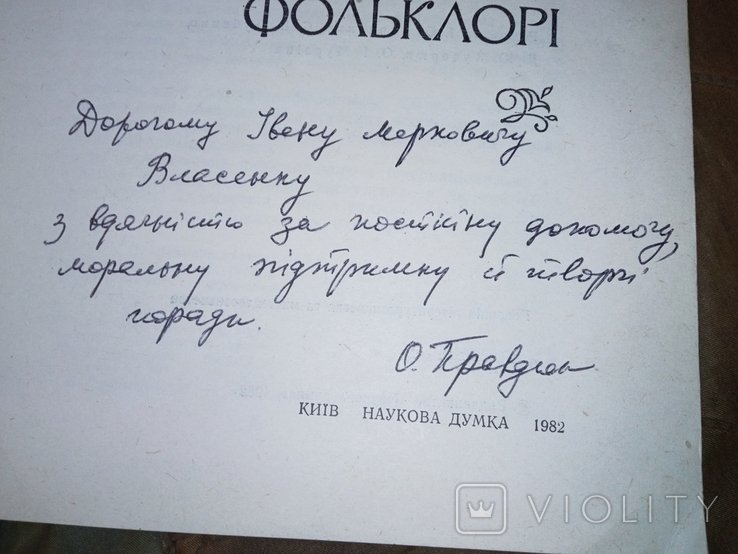 ФОЛЬКЛОРІ
Дорогому Івану Марковичу
Власенку
з вдячністю за постійну допомогу,
моральну підтримку й творчі
поради.
О. Правдюк
КИЇВ НАУКОВА ДУМКА 1982
VIOLITY